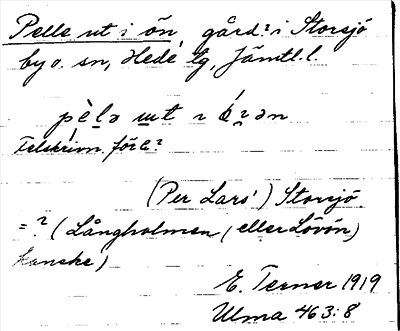 Pelle ut i ön, gård? i Storsjö
by o. sn, Hede tg, Jämtl. l.
pὲ̀lə ut ɪ
Felskrivn. för
(Per Lars') Storsjö.
=? (Långholmen, eller Lövön,
kanske)
E. Terner 1919
Ulma 463:8